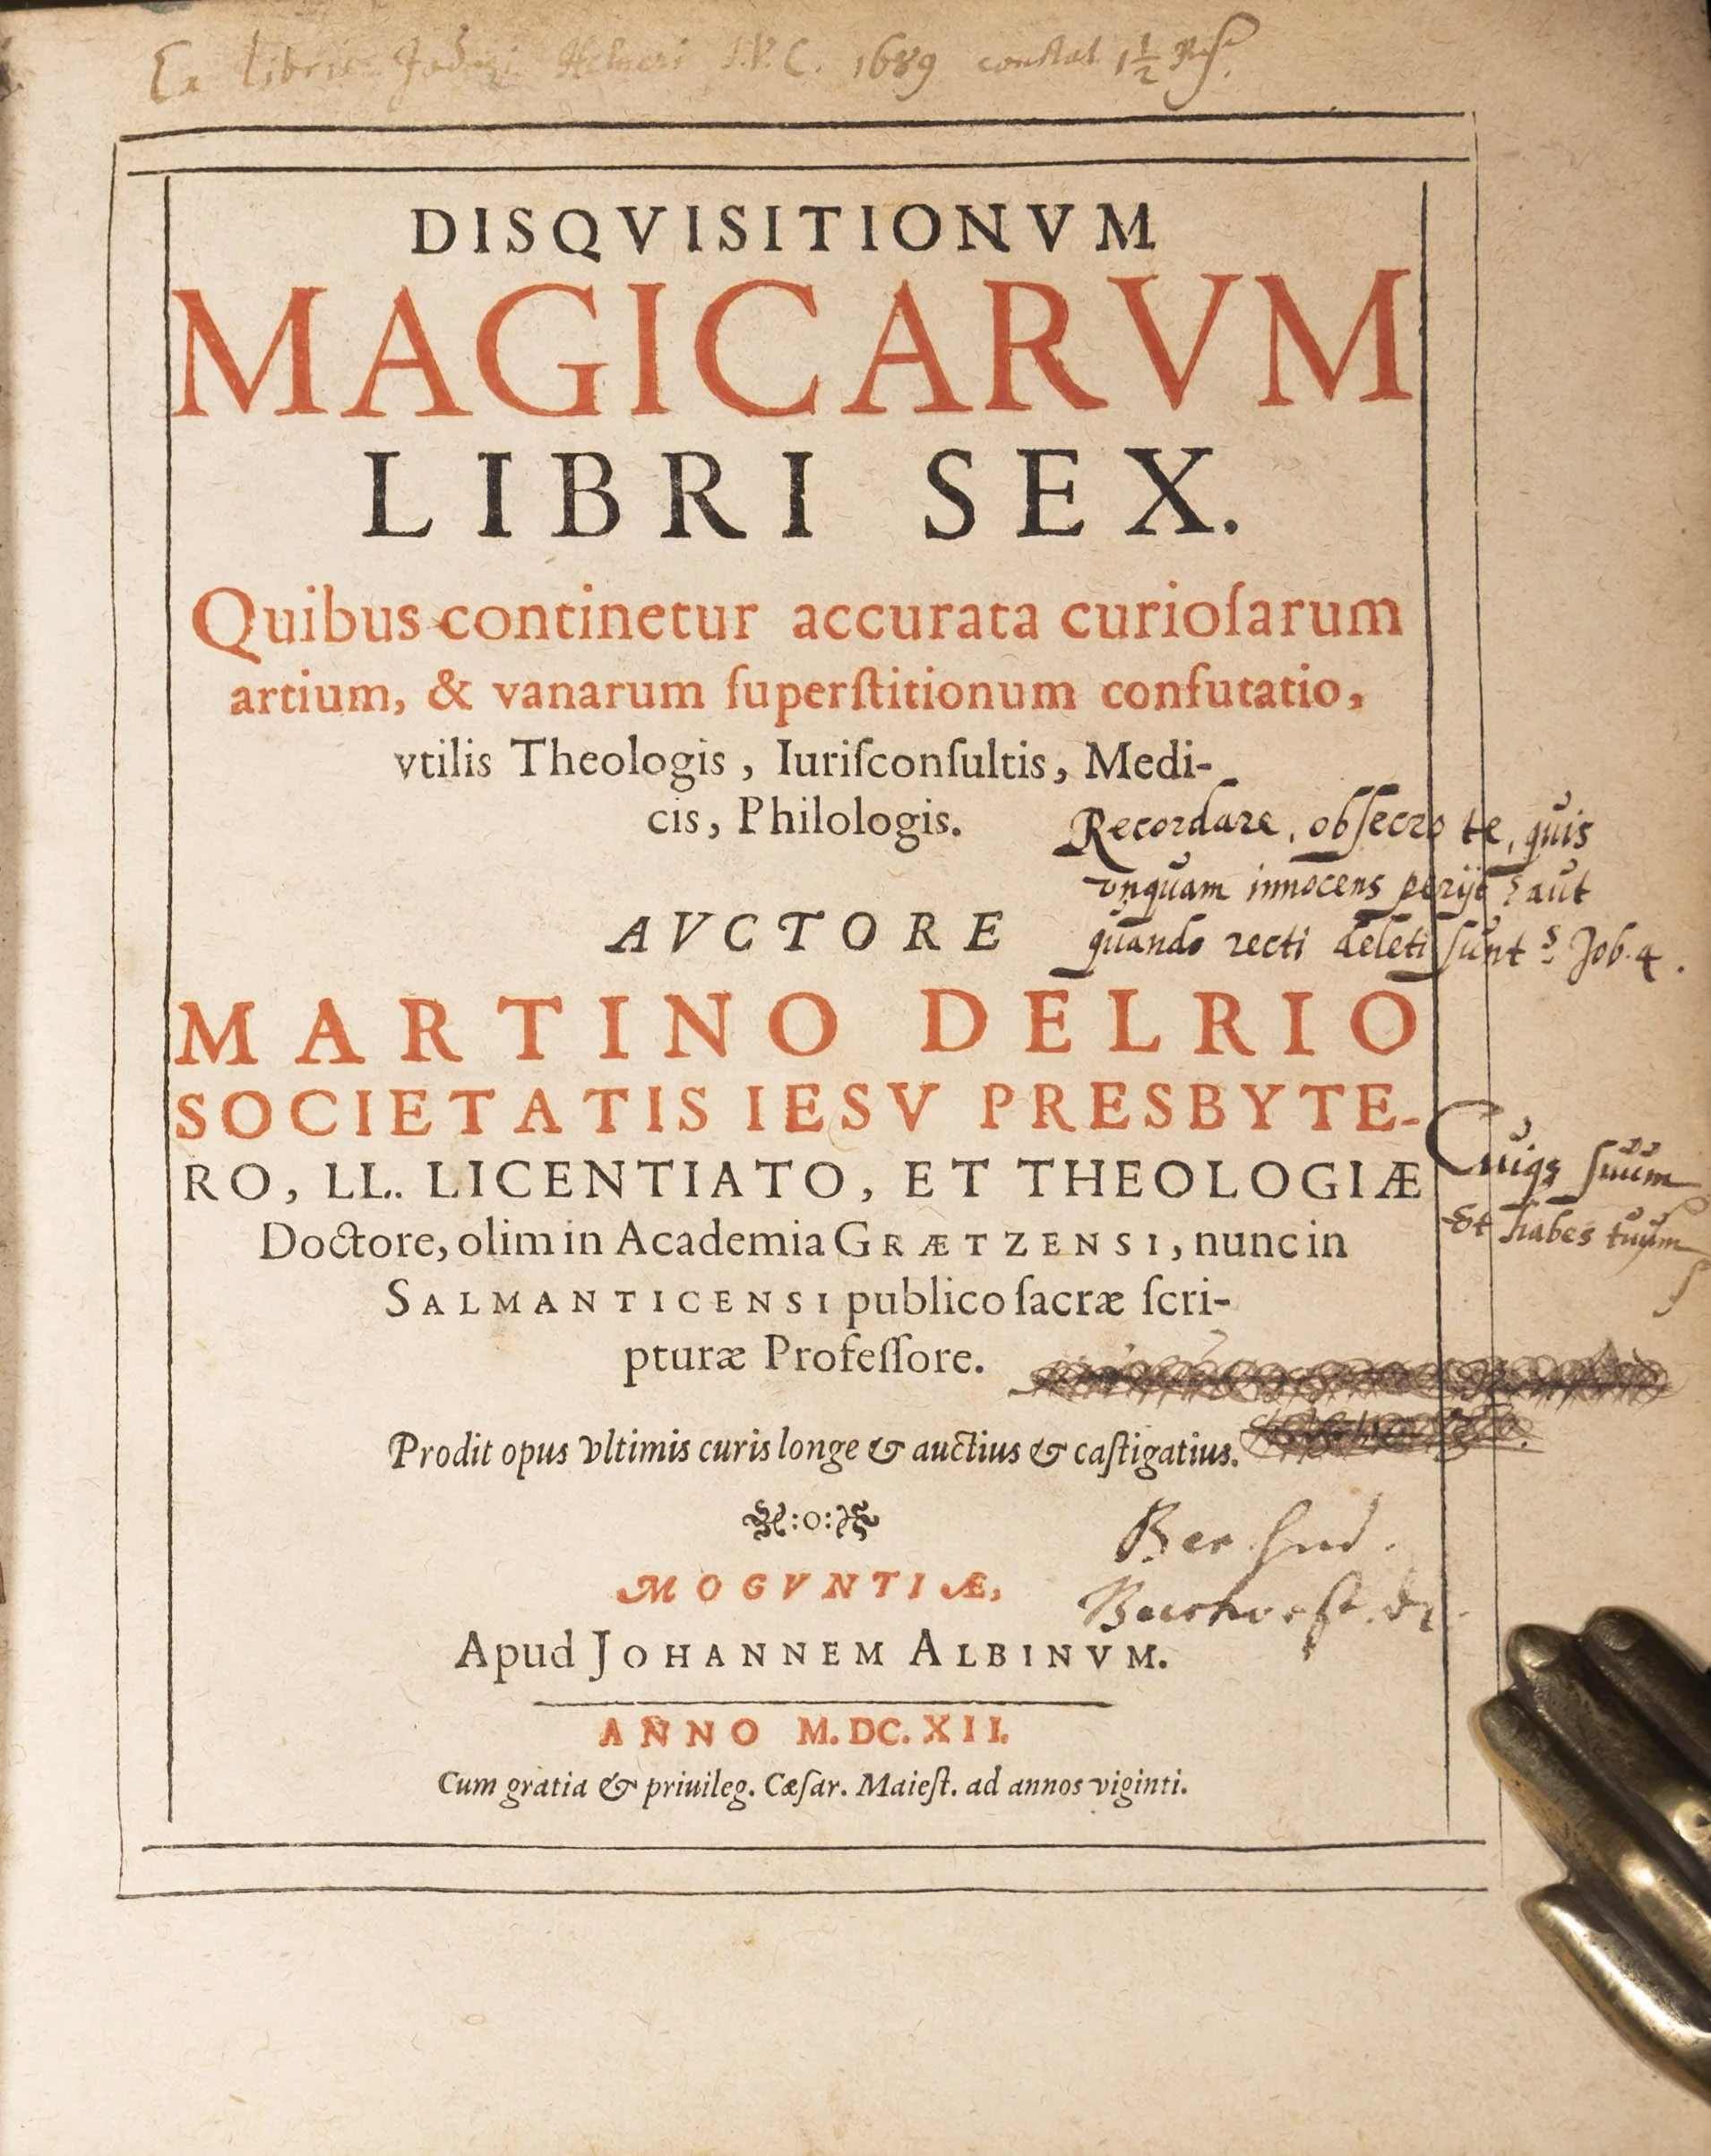 Ex libris 1689 constat 1½
DISQVISITIONVM
MAGICARVM
LIBRI SEX.
Quibus continetur accurata curioſarum
artium, & vanarum ſuperſtitionum confutatio,
vtilis Theologis, Iuriſconſultis, Medi-
cis, Philologis.
Recordare, obſecro te, quis
vnquam innocens perijt? aut
quando recti deleti ſunt? Job. 4.
AVCTORE
MARTINO DELRIO
SOCIETATIS IESV PRESBYTE-
RO, LL. LICENTIATO, ET THEOLOGIÆ
Cuiqꝫ ſuum
Et habes tuum
Doctore, olim in Academia GRÆTZENSI, nunc in
SALMANTICENSI publico ſacræ ſcri-
pturæ Profeſſore.
Prodit opus vltimis curis longe & auctius & caſtigatius.
:o:
MOGVNTIÆ,
Apud JOHANNEM ALBINVM.
ANNO M. DC. XII.
Cum gratia & priuileg. Cæſar. Maieſt. ad annos viginti.